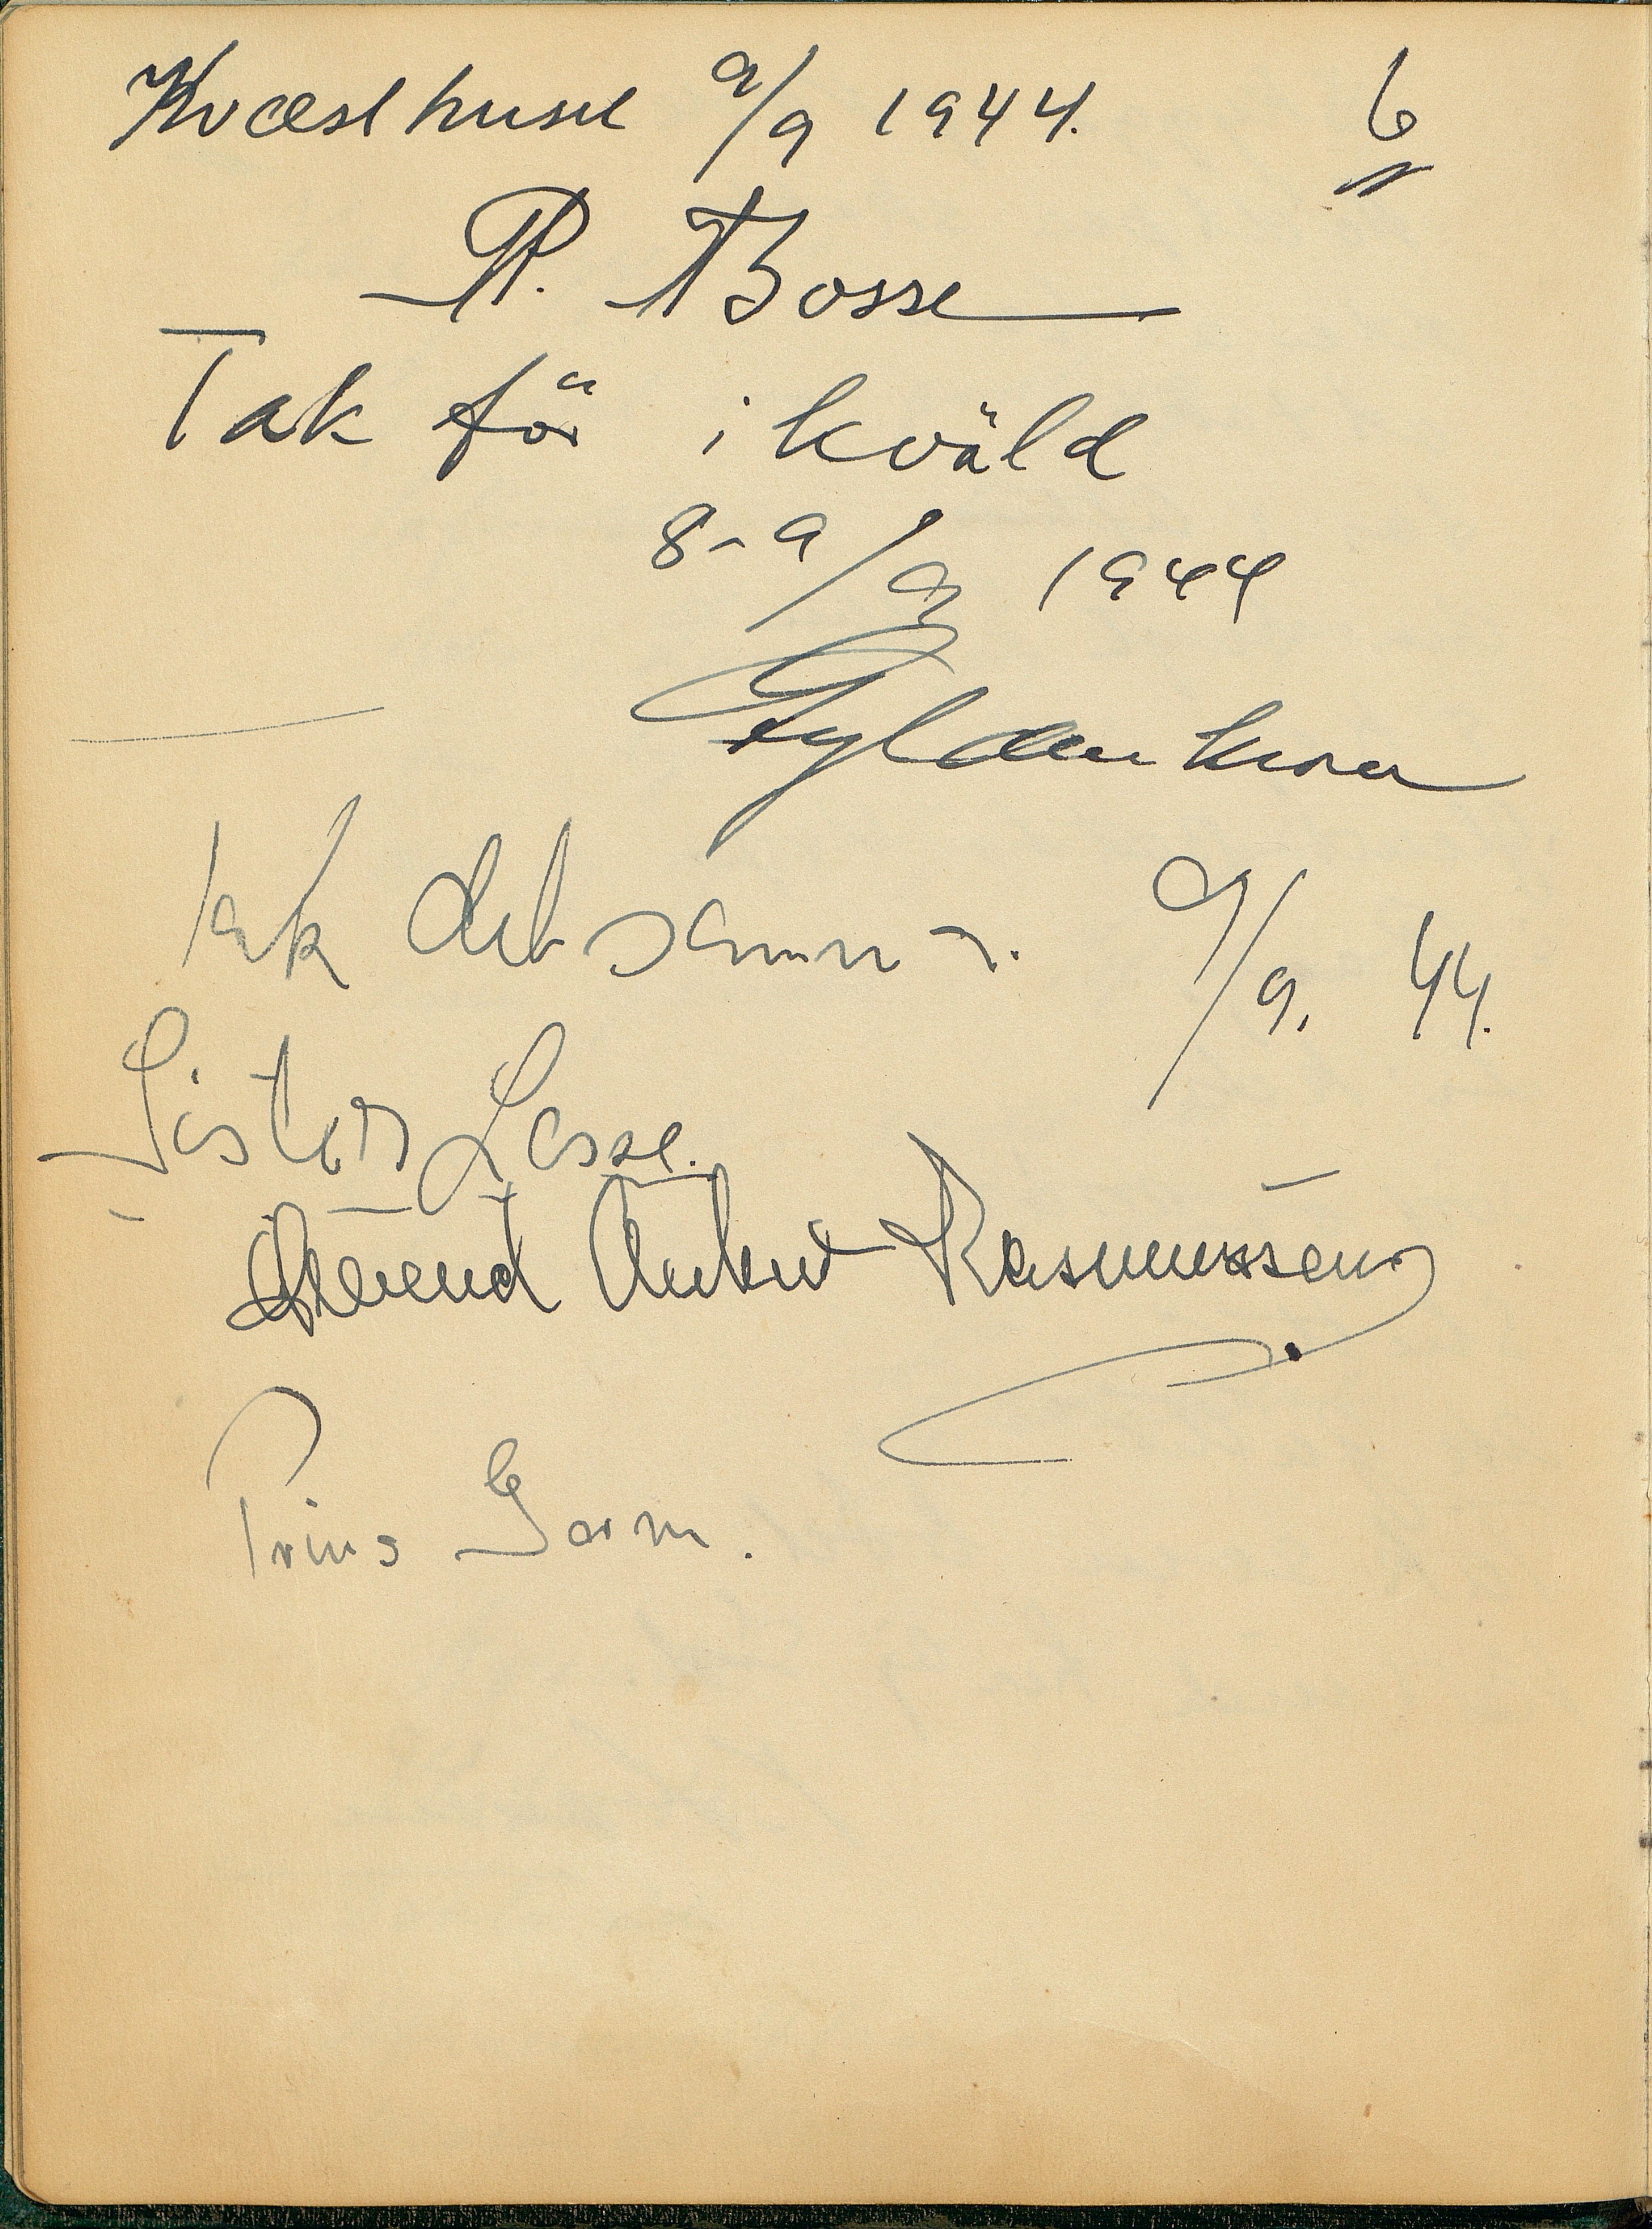 Kvæsthuset 9/9 1944. 6
P. Bosse
Tak för i kväld
8-9/9 1944
Gyldenkrone
Tak det samme. 9/9. 44.
Sister Lasse.
Svend Anker Rasmussen
Prins Gorm.